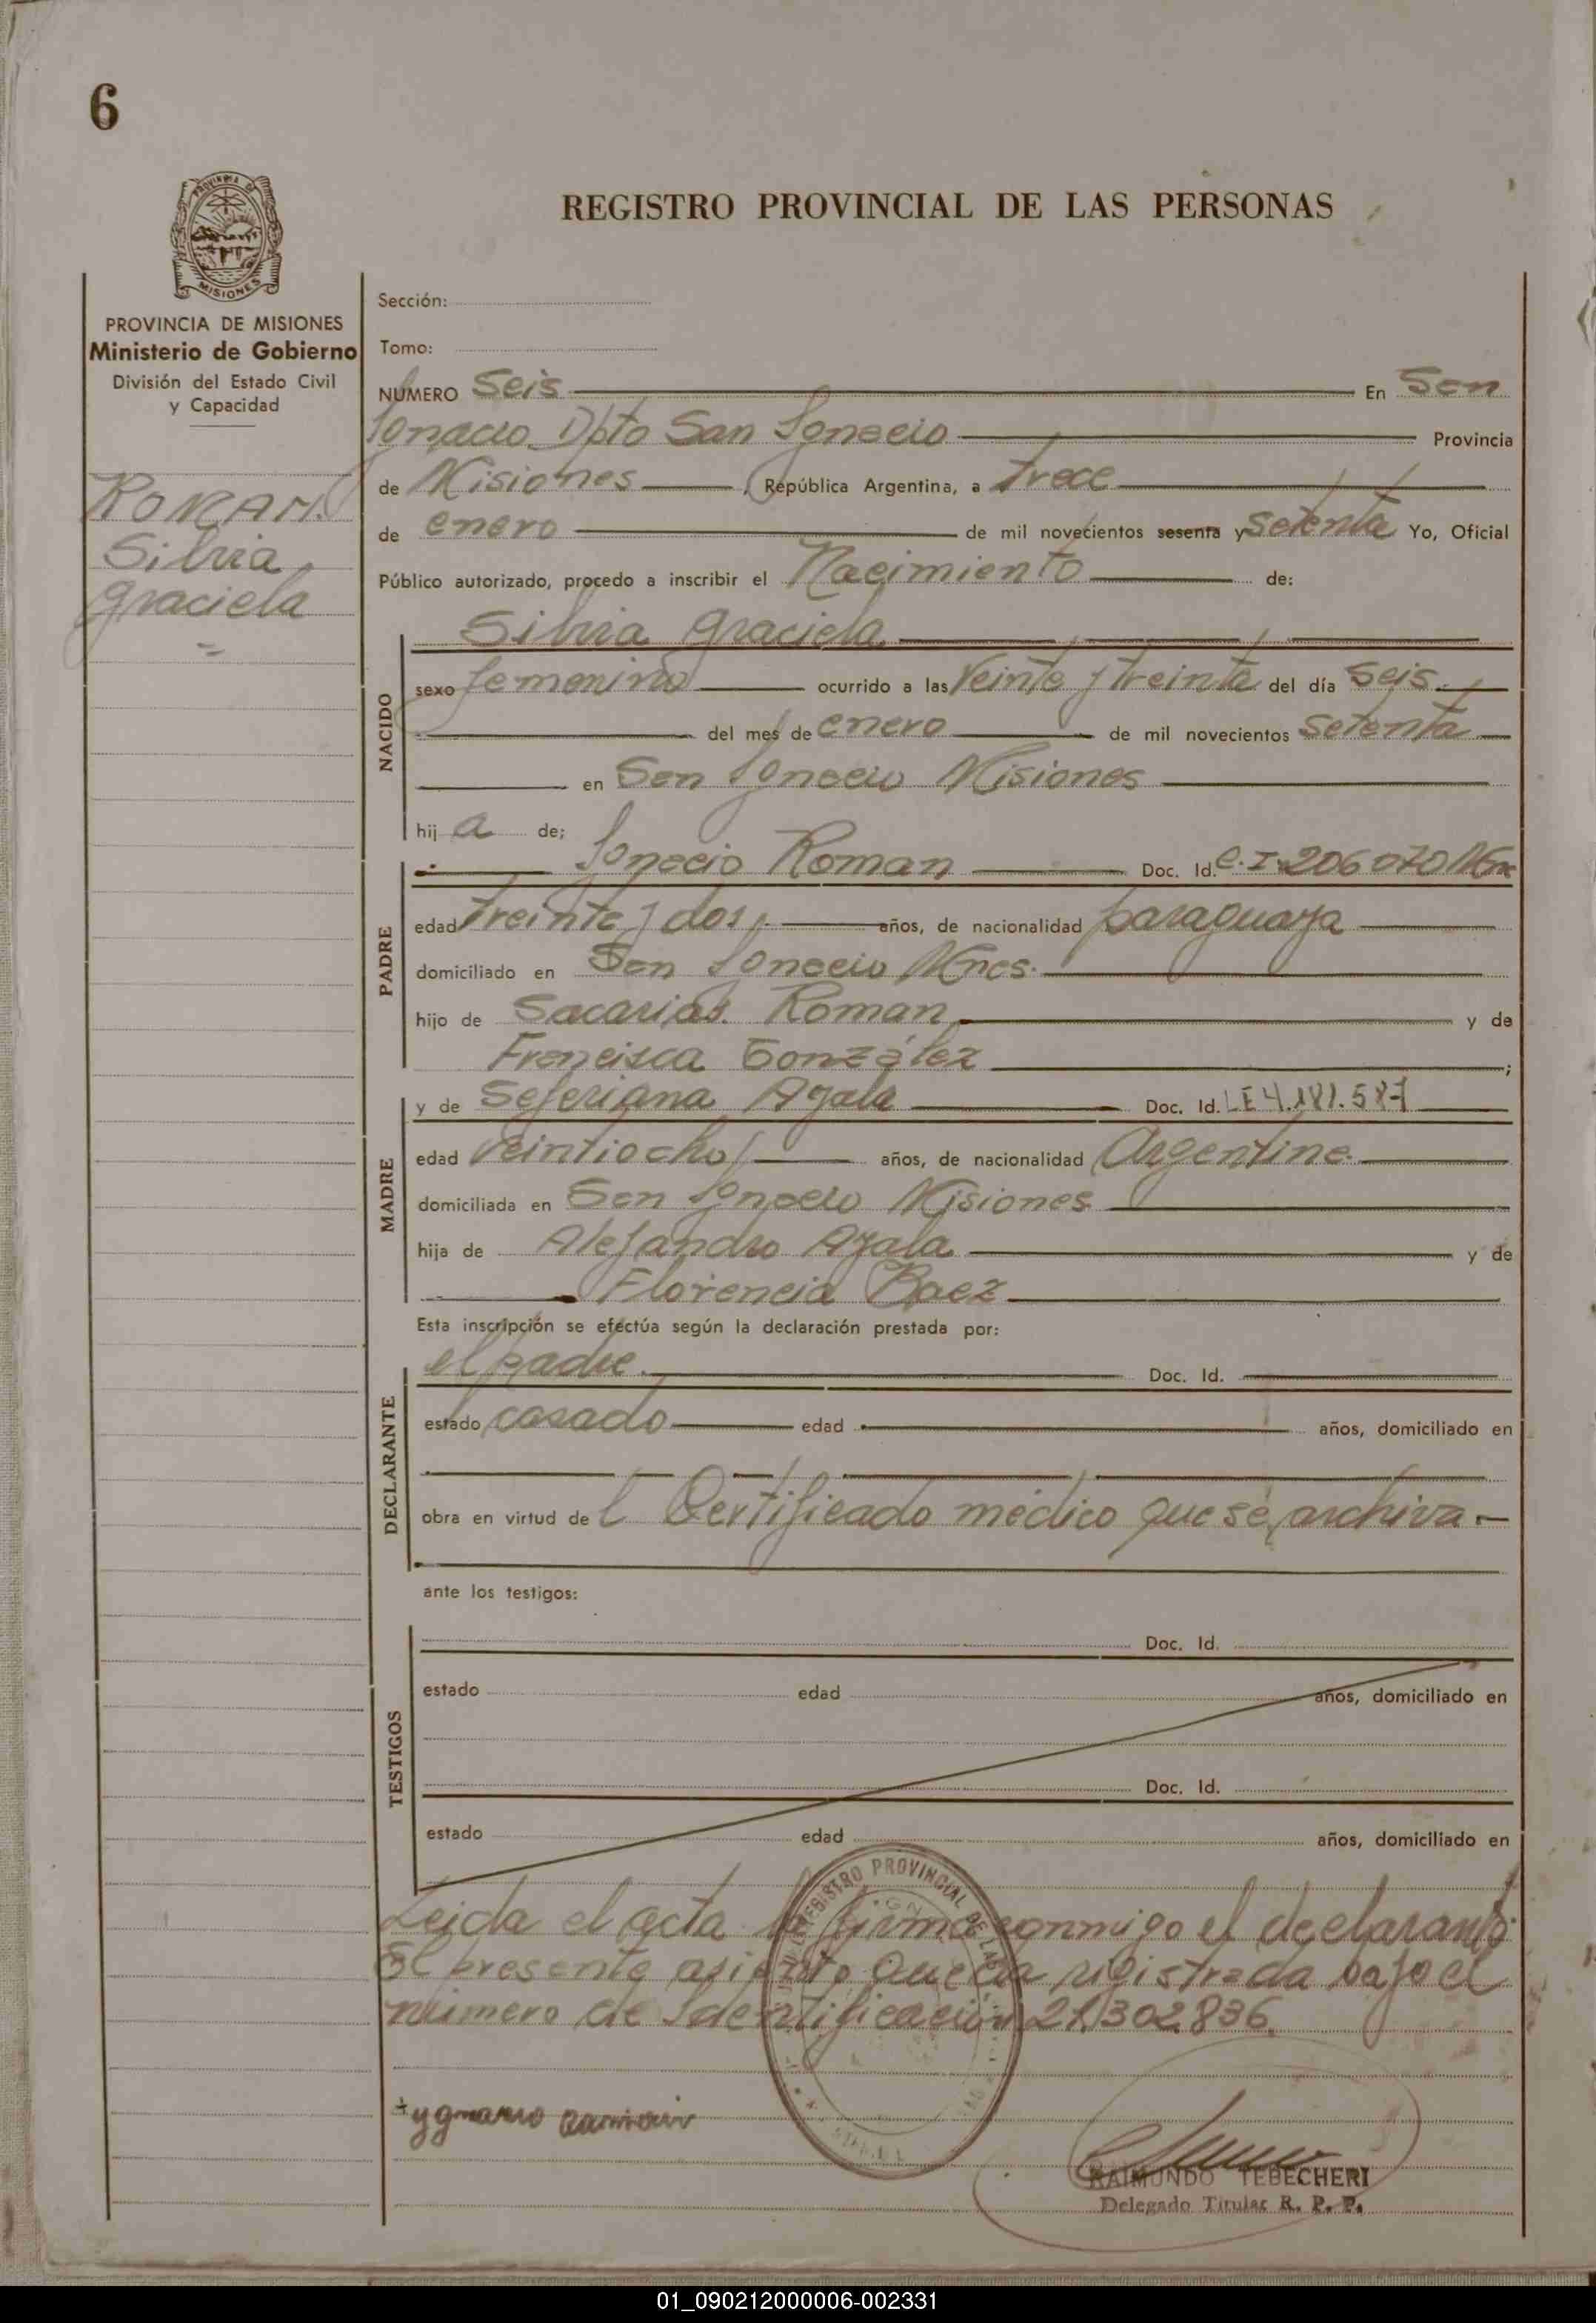 6
REGISTRO PROVINCIAL DE LAS PERSONAS
PROVINCIA DE MISIONES
Ministerio de Gobierno
División del Estado Civil
y Capacidad
ROMAN.
Silvia
Graciela
Sección:
Tomo:
NUMERO Seis En San
Ignacio Dpto San Ignacio Provincia
de Misiones, República Argentina, a trece
de enero de mil novecientos sesenta y setenta Yo, Oficial
Público autorizado, procedo a inscribir el Nacimiento de:
NACIDO
Silvia Graciela
sexo femenino ocurrido a las Veinte y treinta del día seis
del mes de enero de mil novecientos setenta
en San Ignacio Misiones
hij a de;
PADRE
Ignacio Roman Doc. Id. C.I. 206070 Mnes
edad treinta y dos años, de nacionalidad paraguaya
domiciliado en San Ignacio Mnes.
hijo de Sacarias Roman y de
Francisca González ;
MADRE
y de Seferiana Ayala Doc. Id. LE 4.181.587
edad veintiocho años, de nacionalidad Argentina.
domiciliada en San Ignacio Misiones
hija de Alejandro Ayala y de
Florencia Baez
Esta inscripción se efectúa según la declaración prestada por:
DECLARANTE
el padre. Doc. Id.
estado casado edad años, domiciliado en
obra en virtud de l Certificado médico que se archiva.-
ante los testigos:
TESTIGOS
Doc. Id.
estado edad años, domiciliado en
Doc. Id.
estado edad años, domiciliado en
Leida el acta la firma conmigo el declarante.
El presente asiento queda rigistrada bajo el
número de Identificación 21.302.836.
REGISTRO PROVINCIAL DE LA
RAIMUNDO TEBECHERI
Delegado Titular R. P. P.
01_090212000006-002331